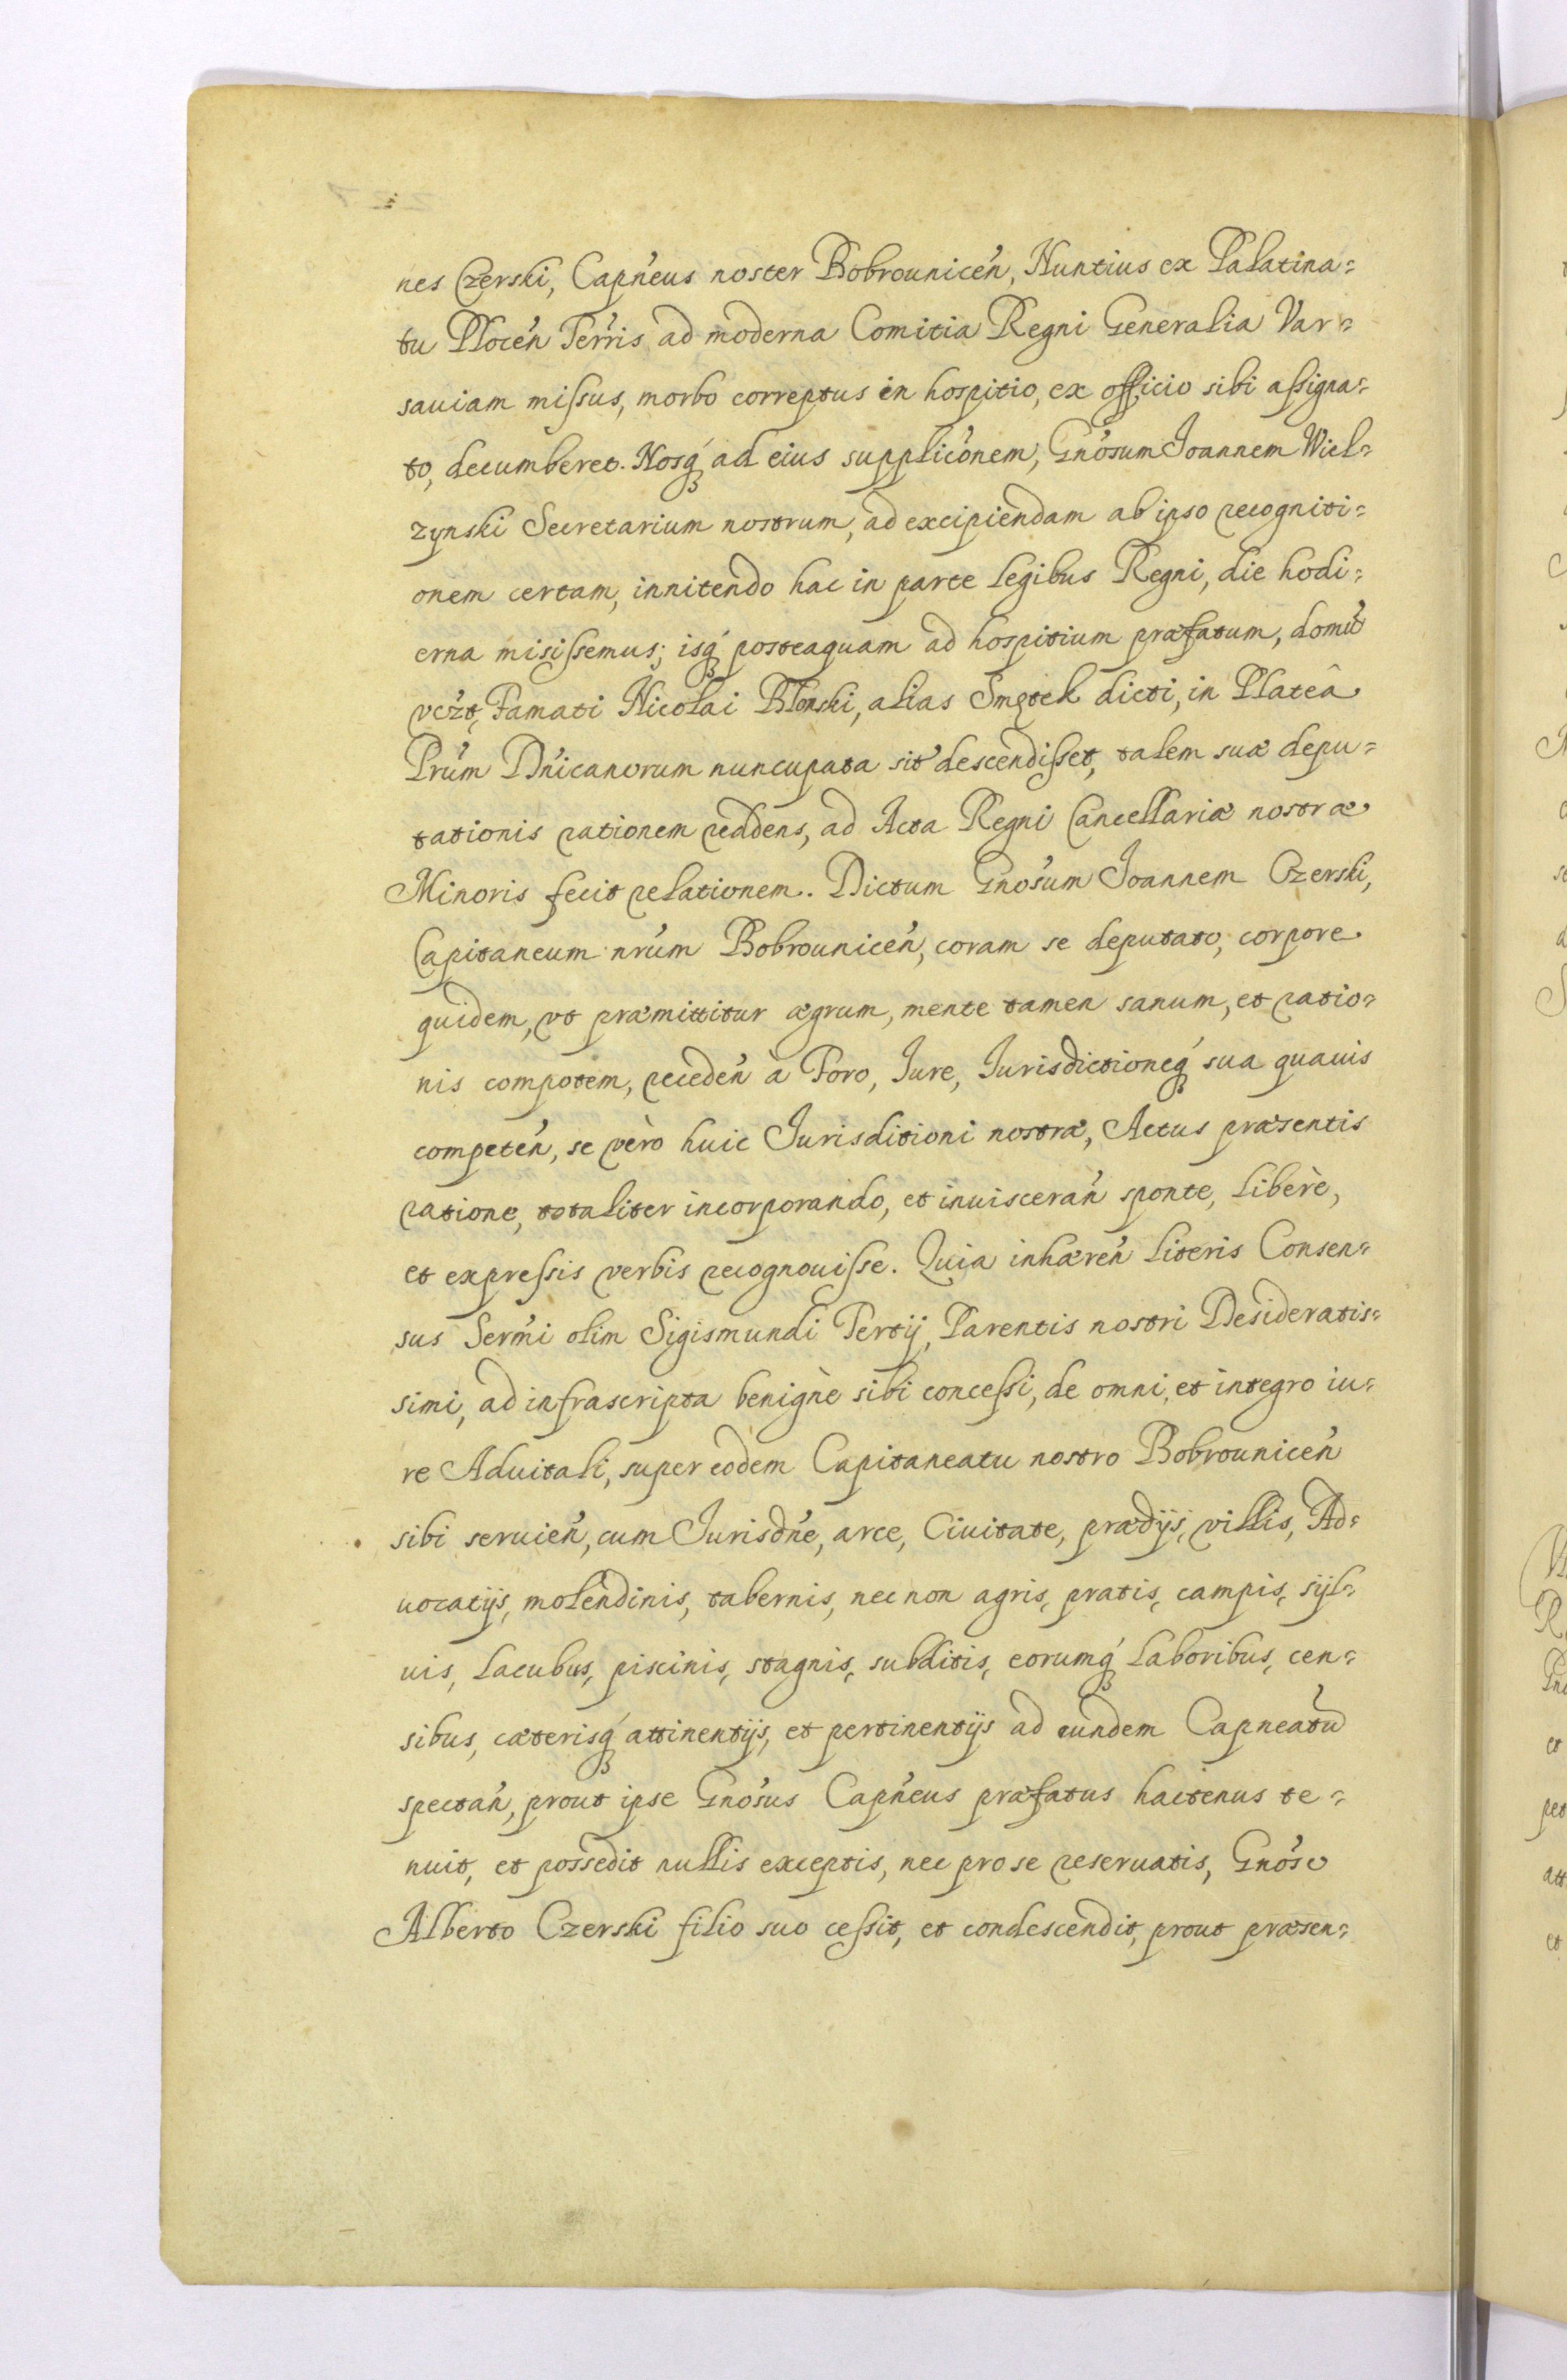 nes Czerski, Capńeus noster Bobrounicen̄, Nuntius ex Palatina=
tu Plocen̄ Terris ad moderna Comitia Regni Generalia Var=
sauiam missus, morbo correptus in hospitio, ex officio sibi assigna=
to, decumberet. Nosq́ ad eius supplicónem, Gnósum Joannem Wiel=
zynski Secretarium nostrum, ad excipiendam ab ipso recogniti=
onem certam, innitendo hac in parte legibus Regni, die hodi=
erna misissemus; isq́ posteaquam ad hospitium præfatum, domū
vczt, Famati Nicolai Blonski, alias Smętek dicti, in Plateâ
Prúm Dńicanorum nuncupata sit descendisset, talem suæ depu=
tationis rationem reddens, ad Acta Regni Cancellariæ nostræ
Minoris fecit relationem. Dictum Gnosúm Joannem Czerski,
Capitaneum nrúm Bobrounicen̄, coram se deputato, corpore
quidem, vt præmittitur ægrum, mente tamen sanum, et ratio=
nis compotem, receden̄ à Foro, Jure, Jurisdictioneq́ sua quauis
competen̄, se verò huic Jurisditioni nostræ, Actus præsentis
ratione, totaliter incorporando, et inuisceran̄ sponte, liberè,
et expressis verbis recognouisse. Quia inhæren̄ literis Consen=
sus Sermí olim Sigismundi Tertij, Parentis nostri Desideratis=
simi, ad infrascripta benignè sibi concessi, de omni, et integro iu=
re Aduitali, super eodem Capitaneatu nostro Bobrounicen̄
sibi seruien̄, cum Jurisdńe, arce, Ciuitate, prædijs, villis, Ad=
uocatijs, molendinis, tabernis, nec non agris, pratis, campis, syl=
uis, lacubus, piscinis, stagnis, subditis, eorumq́ laboribus, cen=
sibus, cæterisq́ attinentijs, et pertinentijs ad eundem Capneatū
spectan̄, prout ipse Gnósus Capńeus præfatus hactenus te=
nuit, et possedit nullis exceptis, nec pro se reseruatis, Gnóso
Alberto Czerski filio suo cessit, et condescendit, prout præsen=